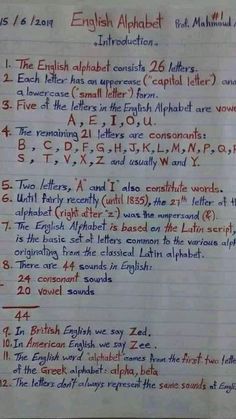 15/6/2019 English Alphabet #1
Prof. Mahmoud
Introduction.
1. The English alphabet consists 26 letters.
2. Each letter has an uppercase ("capital letter") and
a lowercase ("small letter") form.
3. Five of the letters in the English Alphabet are vowe
A, E, I, O, U.
4. The remaining 21 letters are consonants:
B, C, D, F, G, H, J, K, L, M, N, P, Q, R
S, T, V, X, Z and usually W and Y.
5. Two letters, "A" and "I" also constitute words.
6. Until fairly recently (until 1835), the 27th letter of th
alphabet (right after "z") was the ampersand (&).
7. The English Alphabet is based on the Latin script,
is the basic set of letters common to the various alph
originating from the classical Latin alphabet.
8. There are 44 sounds in English:
24 consonant sounds
20 vowel sounds
44
9. In British English we say Zed.
10. In American English we say Zee.
11. The English word "alphabet" comes from the first two lette
of the Greek alphabet: alpha, beta
12. The letters don't always represent the same sounds of Engli